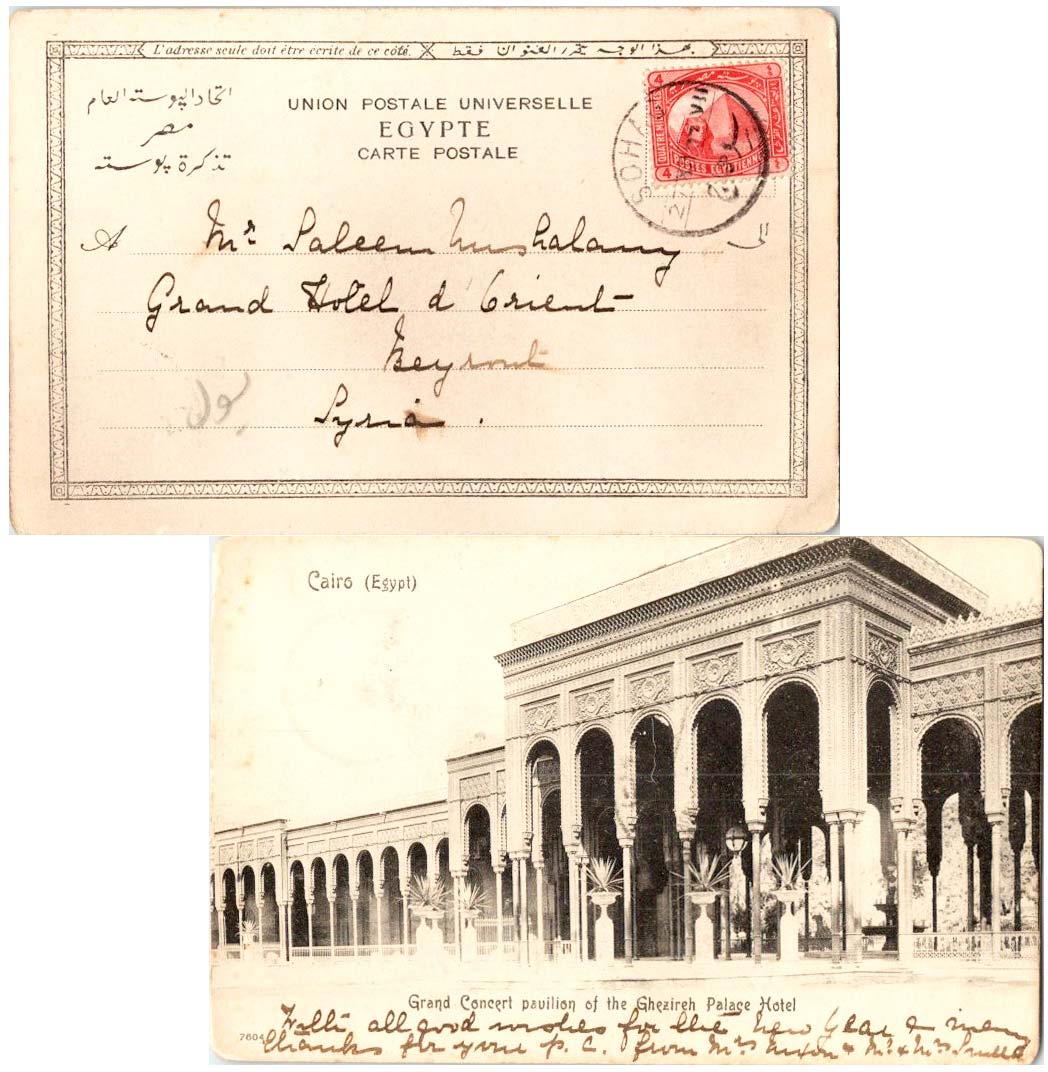 L'adresse seule doit être écrite de ce côté. بهذا الوجه يتحرر العنوان فقط
اتحاد البوسته العام
مصر
تذكرة بوسته
UNION POSTALE UNIVERSELLE
EGYPTE
CARTE POSTALE
4
QUATRE MILLIEMES
POSTES EGYPTIENNES
4
SOHA
A Mr Saleem الى
Grand Hotel d'Orient
Beyrout
Syria.
Cairo (Egypt)
Grand Concert pavilion of the Ghezireh Palace Hotel
7604
With all good wishes for the New Year & many
thanks for your p.c. from Mrs Nixon & Mr & Mrs